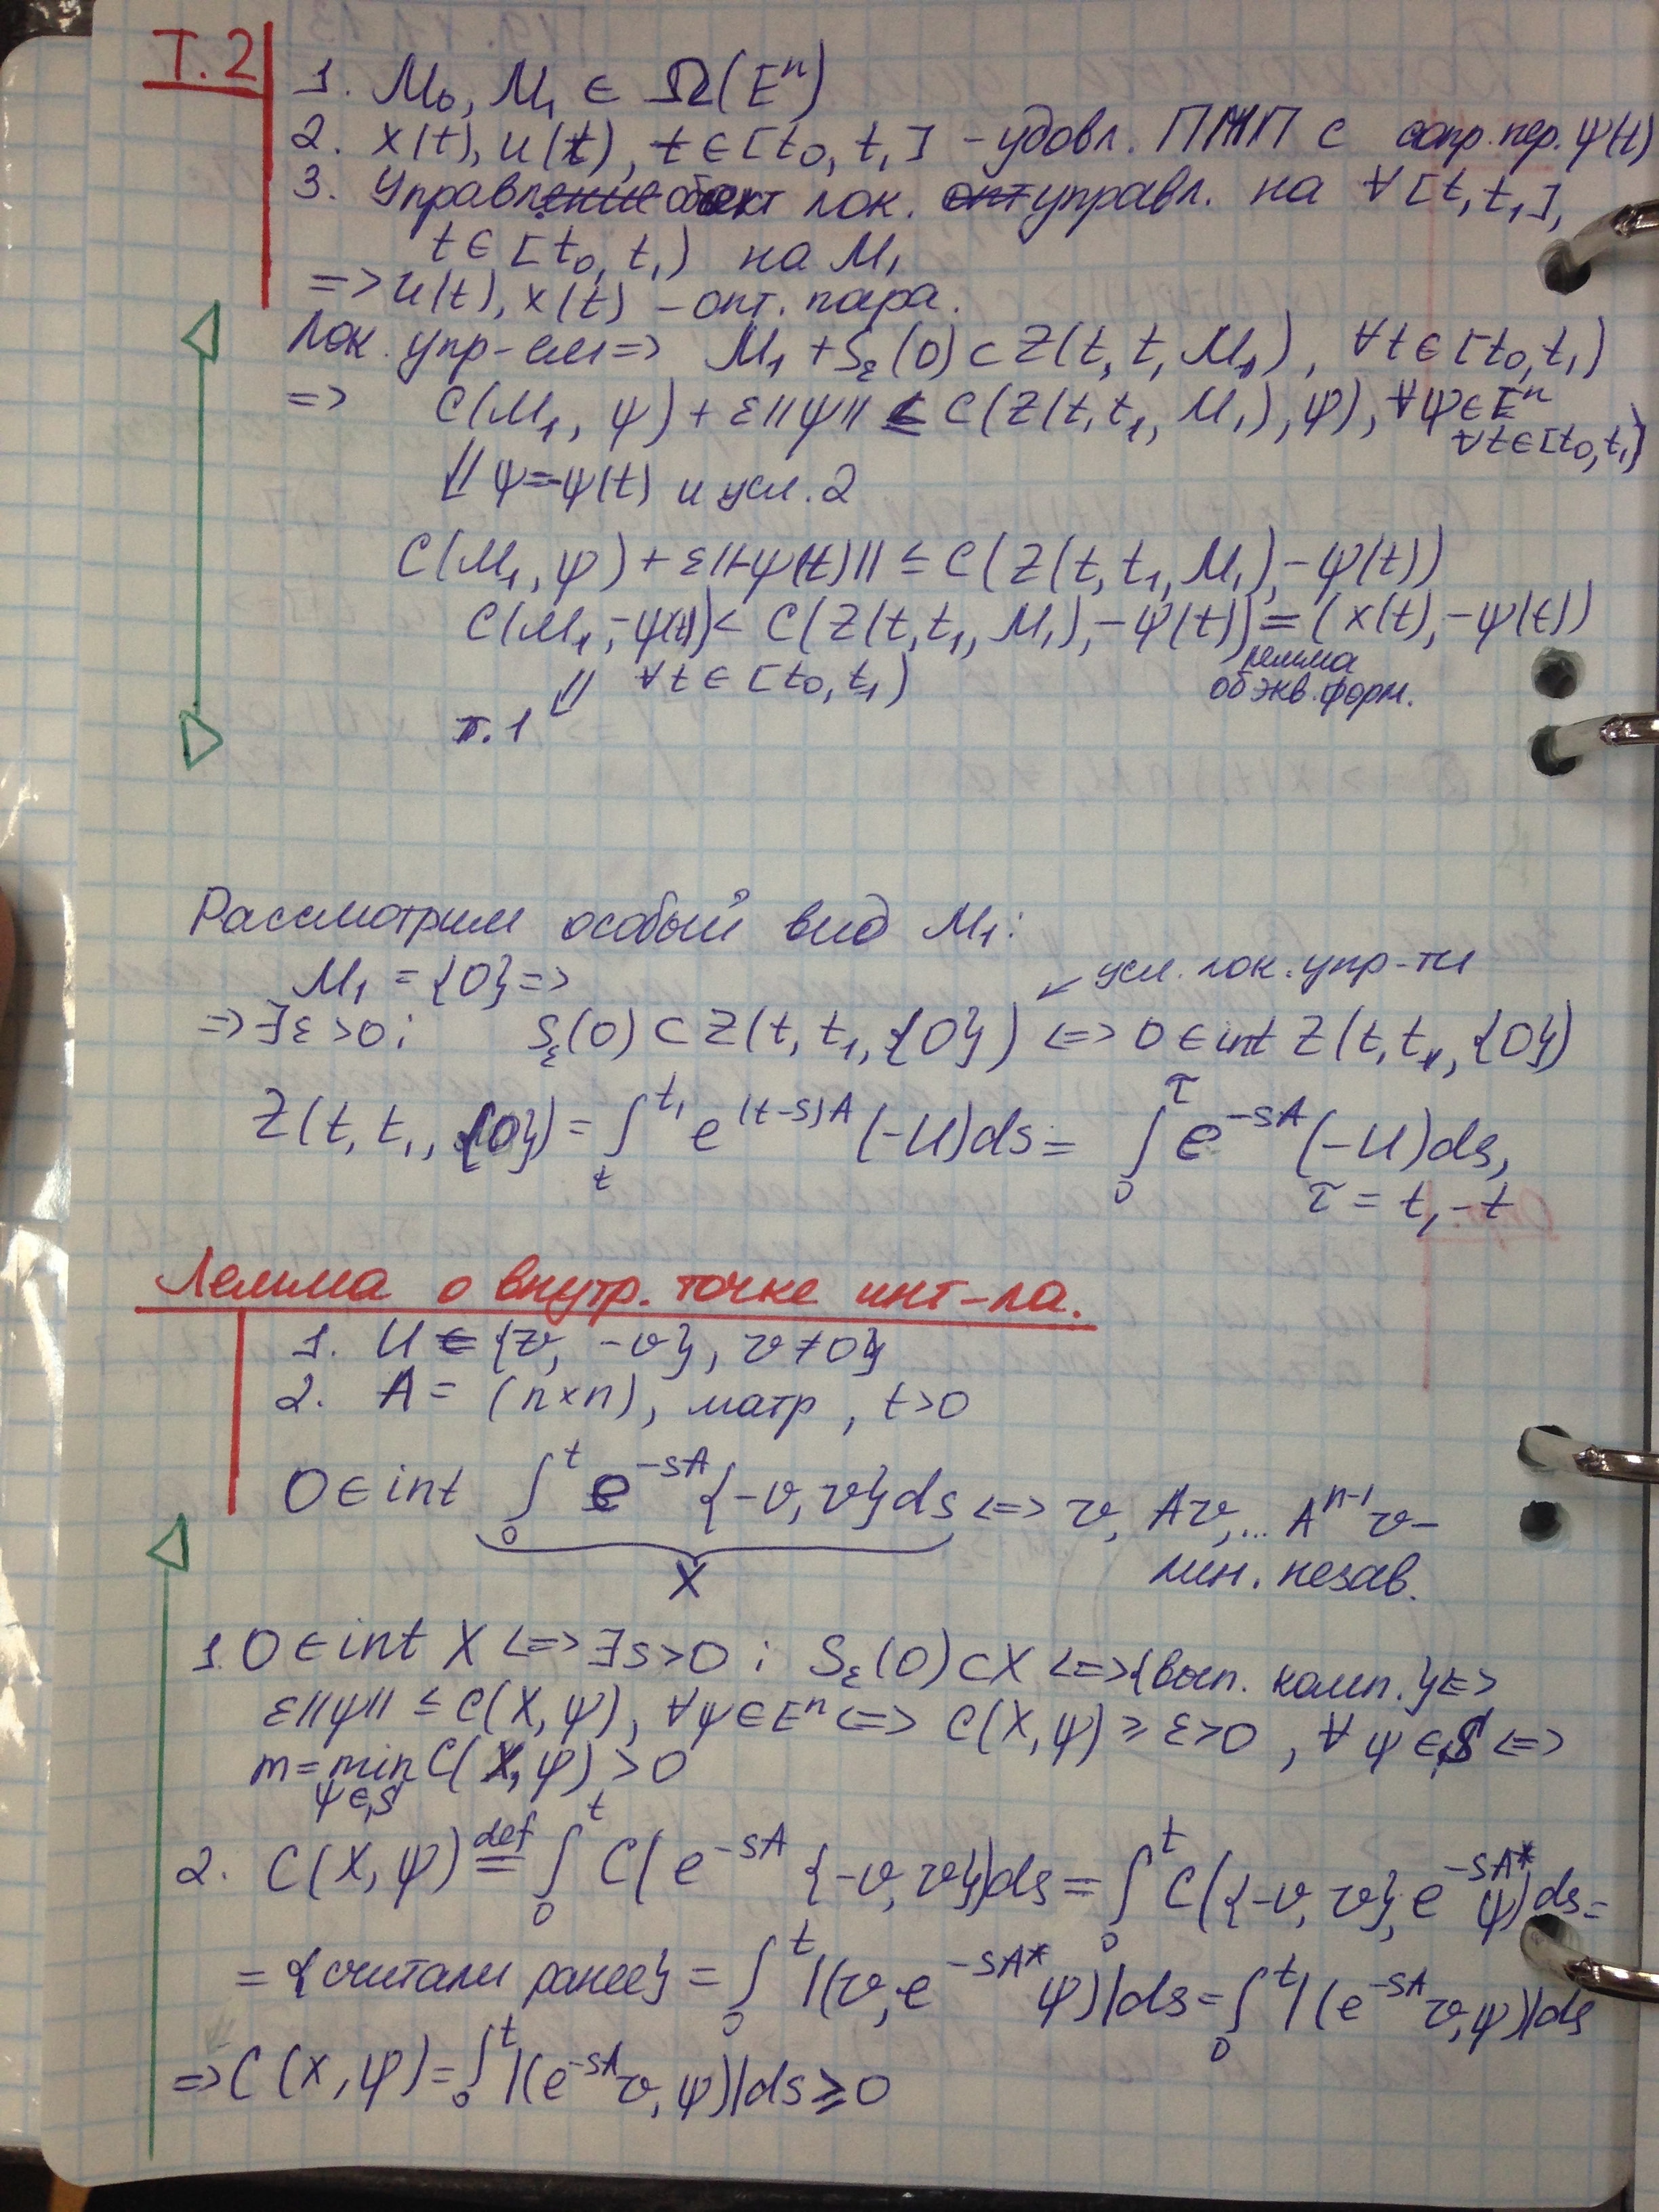 Т.2
1. M₀, M₁ ∈ Ω(Eⁿ)
2. x(t), u(t), t ∈ [t₀, t₁] - удовл. ПМП с сопр. пер. ψ(t)
3. Управл. объект лок. управл. на ∀ [t, t₁],
t ∈ [t₀, t₁) на M₁
=> u(t), x(t) - опт. пара.
Лок. упр-ем => M₁ + S_ε(0) ⊂ Z(t, t, M₁), ∀t ∈ [t₀, t₁)
=> C(M₁, ψ) + ε||ψ|| ≤ C(Z(t, t₁, M₁), ψ), ∀ψ ∈ Eⁿ
∀t ∈ [t₀, t₁)
⇓ ψ = -ψ(t) и усл. 2
C(M₁, ψ) + ε||-ψ(t)|| ≤ C(Z(t, t₁, M₁), -ψ(t))
C(M₁, -ψ(t)) < C(Z(t, t₁, M₁), -ψ(t)) = (x(t), -ψ(t))
лемма
⇓ ∀t ∈ [t₀, t₁)
об экв. форм.
т. 1
Рассмотрим особый вид M₁:
M₁ = {0} =>
усл. лок. упр-ти
=> ∃ε > 0: S_ε(0) ⊂ Z(t, t₁, {0}) <=> 0 ∈ int Z(t, t₁, {0})
Z(t, t₁, {0}) = ∫_t^{t₁} e^{(t-s)A} (-U)ds = ∫_0^τ e^{-sA} (-U)ds,
τ = t₁ - t
Лемма о внутр. точке инт-ла.
1. U = {v, -v}, v ≠ 0}
2. A = (n×n), матр, t > 0
0 ∈ int ∫_0^t e^{-sA} {-v, v}ds <=> v, Av, ... A^{n-1}v -
X
лин. незав.
1. 0 ∈ int X <=> ∃s > 0: S_ε(0) ⊂ X <=> {вып. комп.} <=>
ε||ψ|| ≤ C(X, ψ), ∀ψ ∈ Eⁿ <=> C(X, ψ) ≥ ε > 0, ∀ψ ∈ S <=>
m = min_{ψ∈S} C(X, ψ) > 0
2. C(X, ψ) =^{def} ∫_0^t C(e^{-sA} {-v, v})ds = ∫_0^t C({-v, v}, e^{-sA*} ψ)ds =
= {считали ранее} = ∫_0^t |(v, e^{-sA*} ψ)|ds = ∫_0^t |(e^{-sA} v, ψ)|ds
=> C(X, ψ) = ∫_0^t |(e^{-sA} v, ψ)|ds ≥ 0